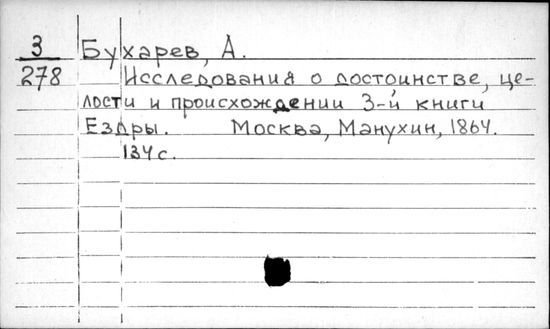 3 Бухарев, А.
278 Исследования о достоинстве, це-
лости и происхождении 3-й книги
Ездры. Москва, Манухин, 1864.
134 с.